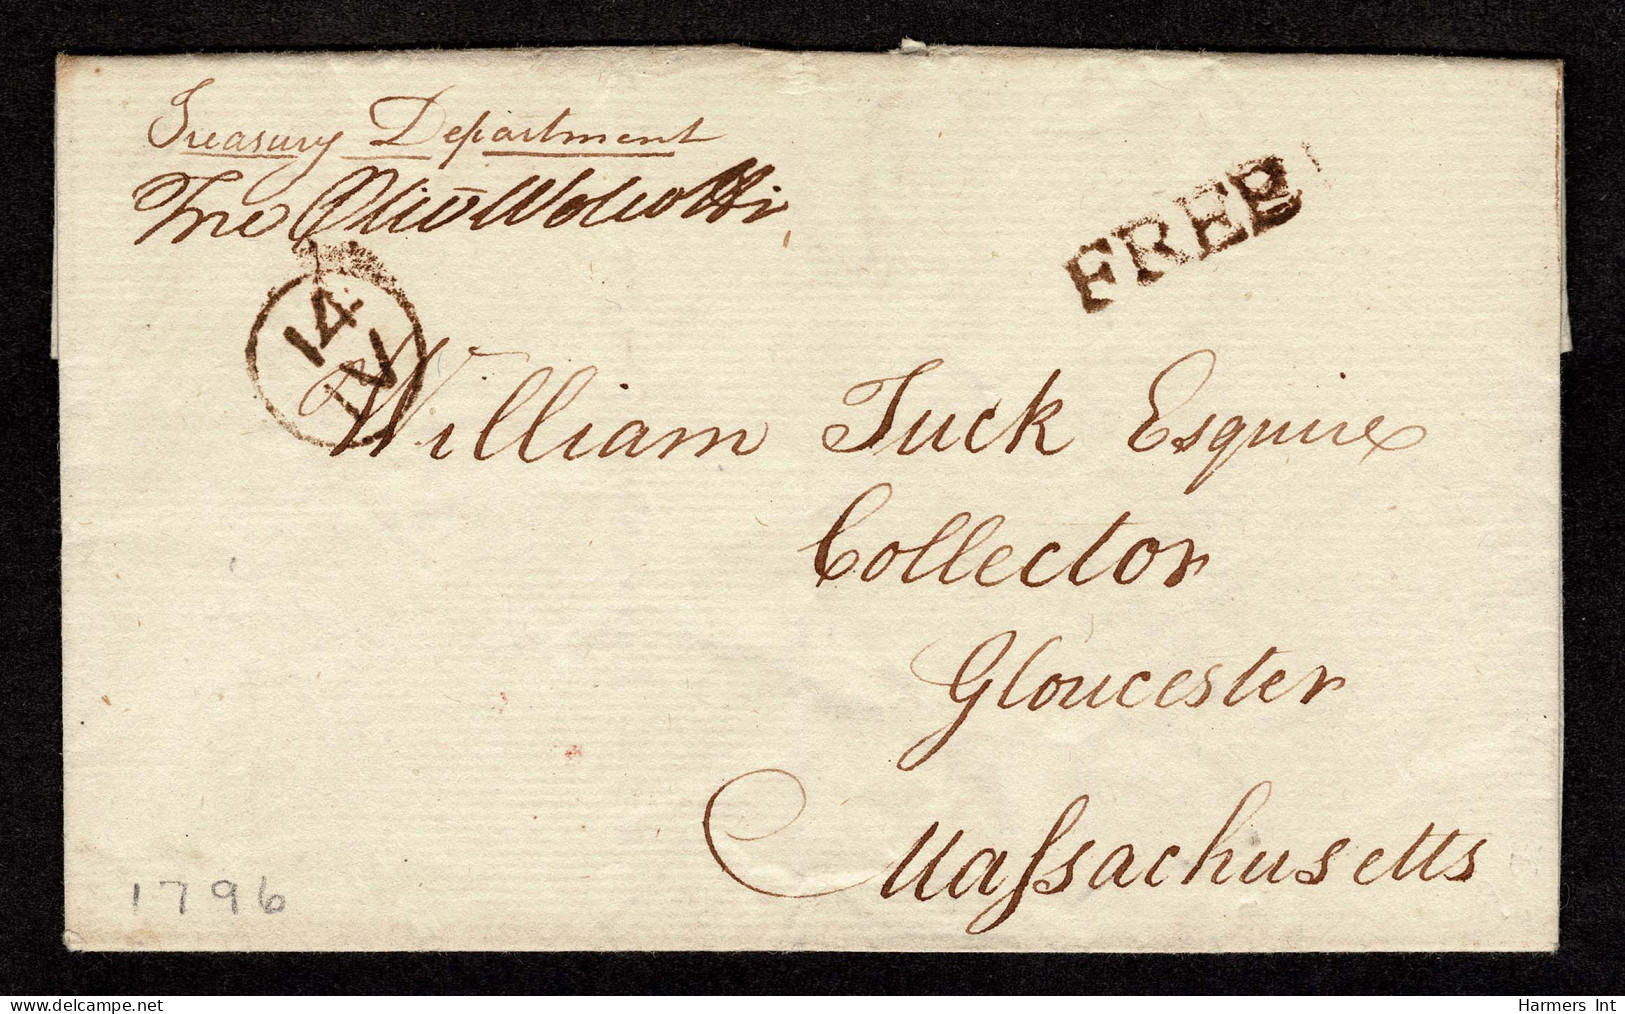 Treasury Department
Free Oliv Wolcott Jr
FREE
14
IV
William Tuck Esquire
Collector
Gloucester
Maſsachusetts
1796
Harmers Int